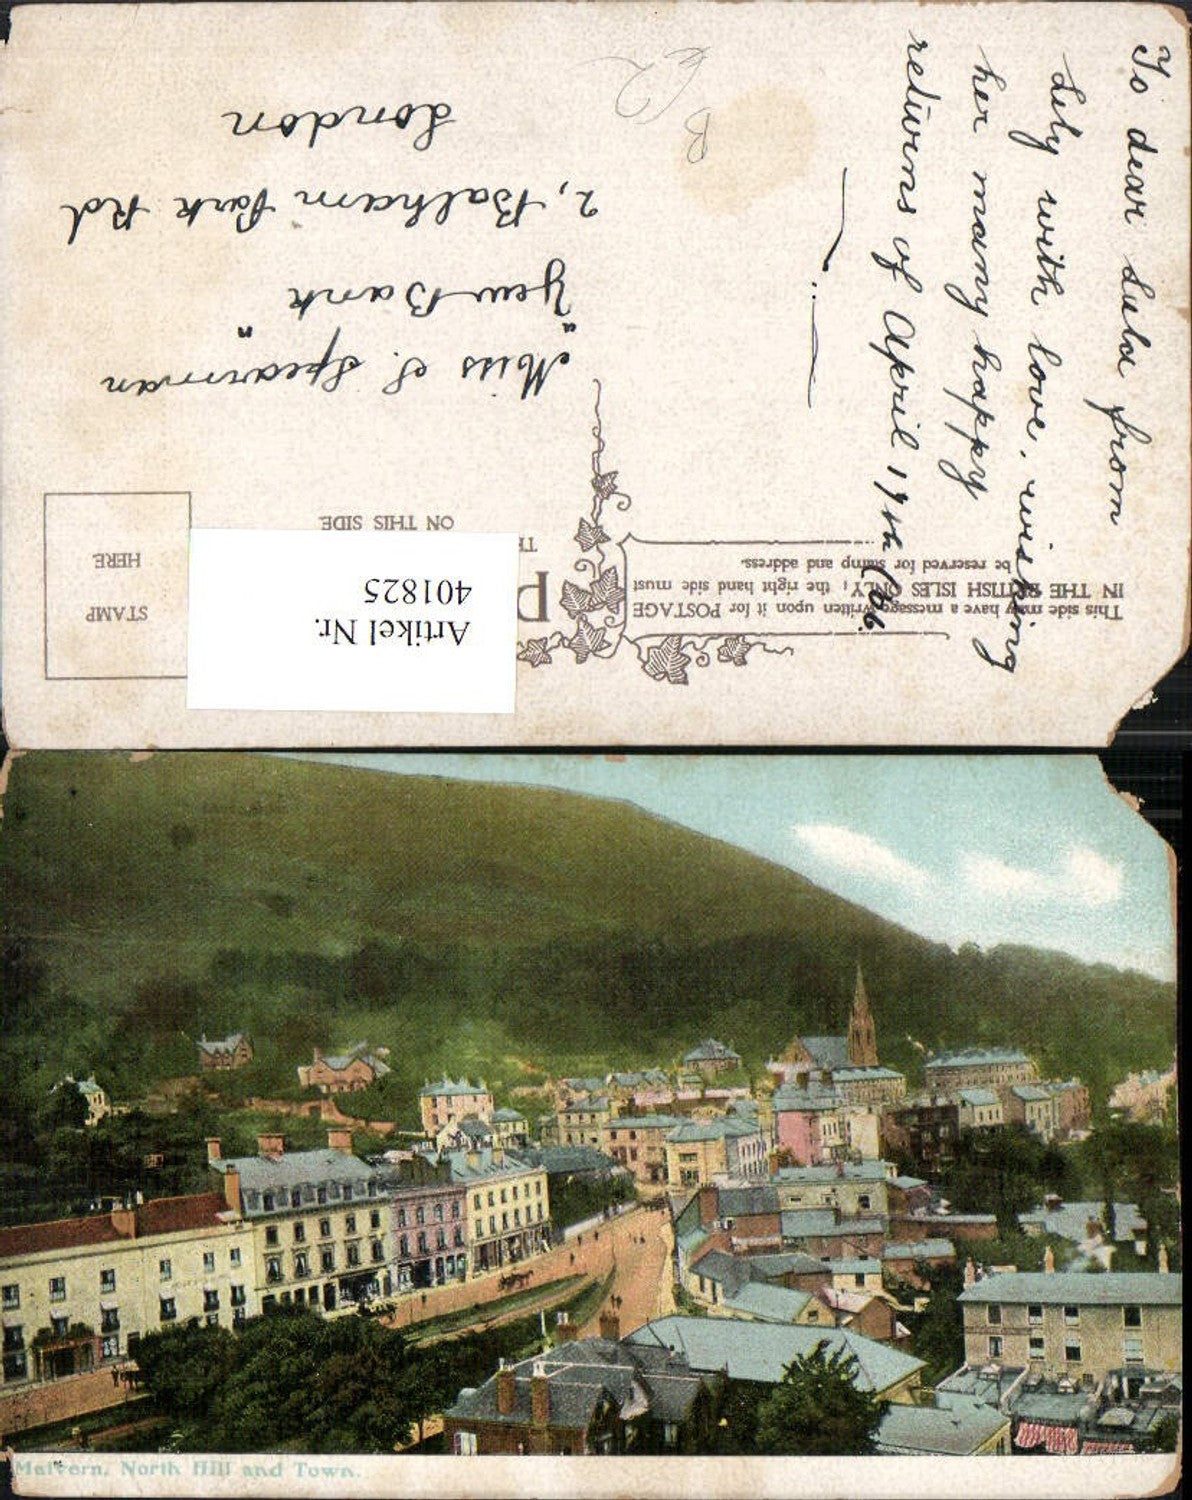 To dear Lulu from
Lily with love, wishing
her many happy
returns of April 19th (06.
This side may have a message written upon it for POSTAGE
IN THE BRITISH ISLES ONLY; the right hand side must
be reserved for stamp and address.
P
ON THIS SIDE
STAMP
HERE
Artikel Nr.
401825
Miss S. Spearman
"Yew Bank"
2, Balham Park Rd
London
Malvern. North Hill and Town.